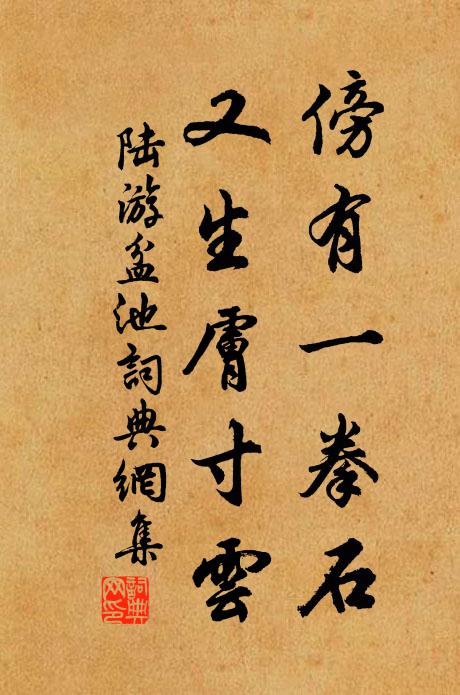 傍有一拳石
又生膚寸雲
陸游盆池詞典網集
詞典網印